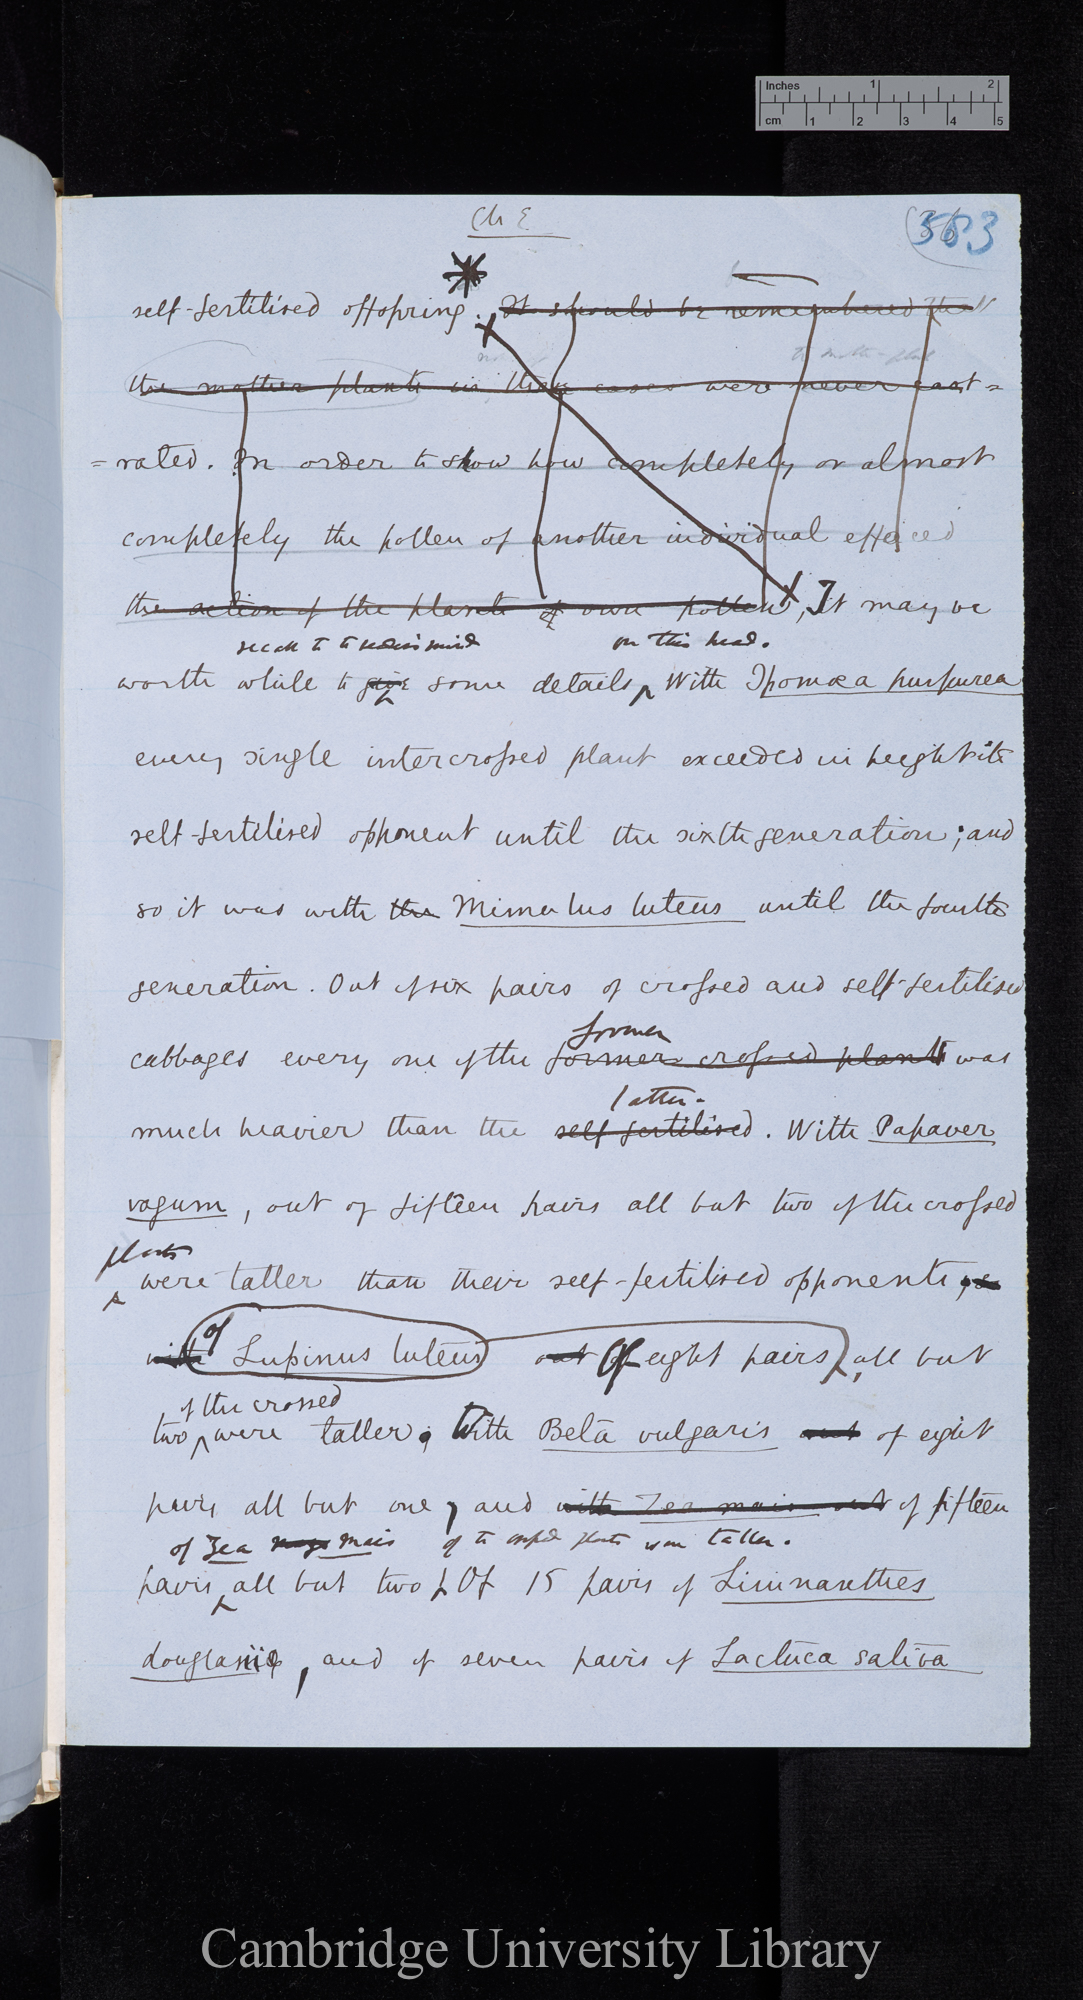 Inches 1 2
cm 1 2 3 4 5
Ch E
583
self-fertilised offspring. It should be remembered that
to mother-plant
the mother plants in these cases were never cast=
=rated. In order to show how completely or almost
completely the pollen of another individual effaced
the action of the plants own pollen, It may be
recall to the readers mind on this head.
worth while to give some details, With Ipomœa purpurea
every single intercrossed plant exceeded in height its
self-fertilised opponent until the sixth generation; and
so it was with the Mimulus luteus until the fourth
generation. Out of six pairs of crossed and self-fertilised
former
cabbages every one of the former crossed plants was
latter.
much heavier than the self fertilised. With Papaver
vagum, out of fifteen pairs all but two of the crossed
plants
were taller than their self-fertilised opponents
with of Lupinus luteus out Of eight pairs, all but
of the crossed
two were taller. With Beta vulgaris out of eight
pairs all but one, and with Zea mais out of fifteen
of Zea mays mais of the crossed plants were taller.
pairs all but two Of 15 pairs of Limnanthes
douglasii, and of seven pairs of Lactuca sativa
Cambridge University Library